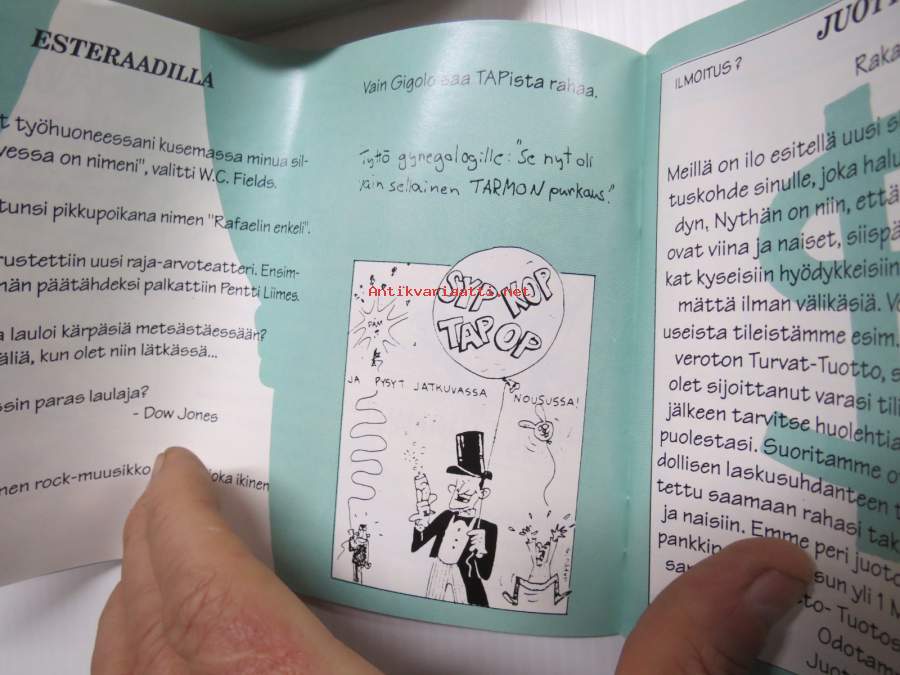 ESTERAADILLA
t työhuoneessani kusemassa minua sil-
vessa on nimeni", valitti W.C. Fields.
tunsi pikkupoikana nimen "Rafaelin enkeli".
rustettiin uusi raja-arvoteatteri. Ensim-
män päätähdeksi palkattiin Pentti Liimes.
a lauloi kärpäsiä metsästäessään?
äliä, kun olet niin lätkässä...
ssin paras laulaja?
- Dow Jones
nen rock-muusikko
Joka ikinen
Vain Gigolo saa TAPista rahaa.
Tyttö gynegologille: "Se nyt oli
vain sellainen TARMON purkaus."
SYP KOP
TAP OP
Antikvariaatti.net
PAM
JA PYSYT JATKUVASSA NOUSUSSA!
ILMOITUS?
Meillä on ilo esitellä uusi
tuskohde sinulle, joka halu
dyn, Nythän on niin, että
ovat viina ja naiset, siispä
kat kyseisiin hyödykkeisiin
mättä ilman välikäsiä. Vo
useista tileistämme esim.
veroton Turvat-Tuotto, s
olet sijoittanut varasi tili
jälkeen tarvitse huolehtia
puolestasi. Suoritamme o
dollisen laskusuhdanteen t
tettu saamaan rahasi tak
ja naisiin. Emme peri juoto
pankkin
sun yli 1 M
to- Tuotos
Odotam
Juot